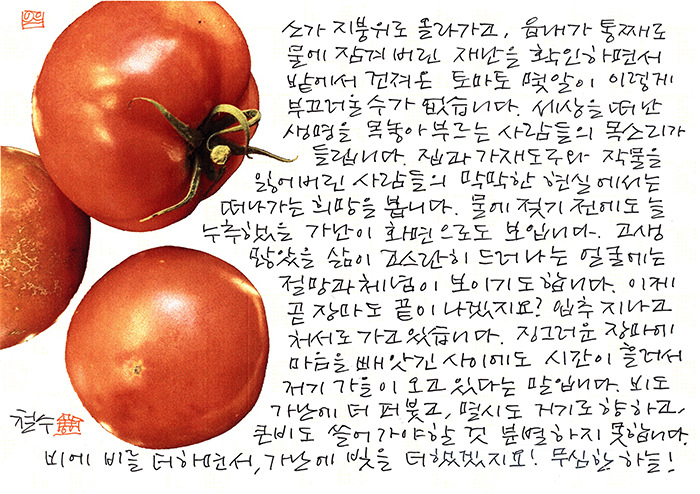 소가 지붕위로 올라가고, 읍내가 통째로
물에 잠겨 버린 재난을 확인하면서
밭에서 건져온 토마토 몇알이 이렇게
부끄러울 수가 없습니다. 세상을 떠난
생명을 목놓아 부르는 사람들의 목소리가
들립니다. 집과 가재도구와 작물을
잃어버린 사람들의 막막한 현실에서는
떠나가는 희망을 봅니다. 물에 젖기 전에도 늘
누추했을 가난이 화면으로도 보입니다. 고생
많았을 삶이 고스란히 드러나는 얼굴에는
절망과 체념이 보이기도 합니다. 이제
곧 장마도 끝이 나겠지요? 입추 지나고
처서로 가고 있습니다. 징그러운 장마에
마음을 빼앗긴 사이에도 시간이 흘러서
저기 가을이 오고 있다는 말입니다. 비도
가난에 더 퍼붓고, 멸시도 거기로 향하고,
큰비도 쓸어가야할 것 분별하지 못합니다.
비에 비를 더하면서, 가난에 빚을 더했겠지요! 무심한 하늘!
철수